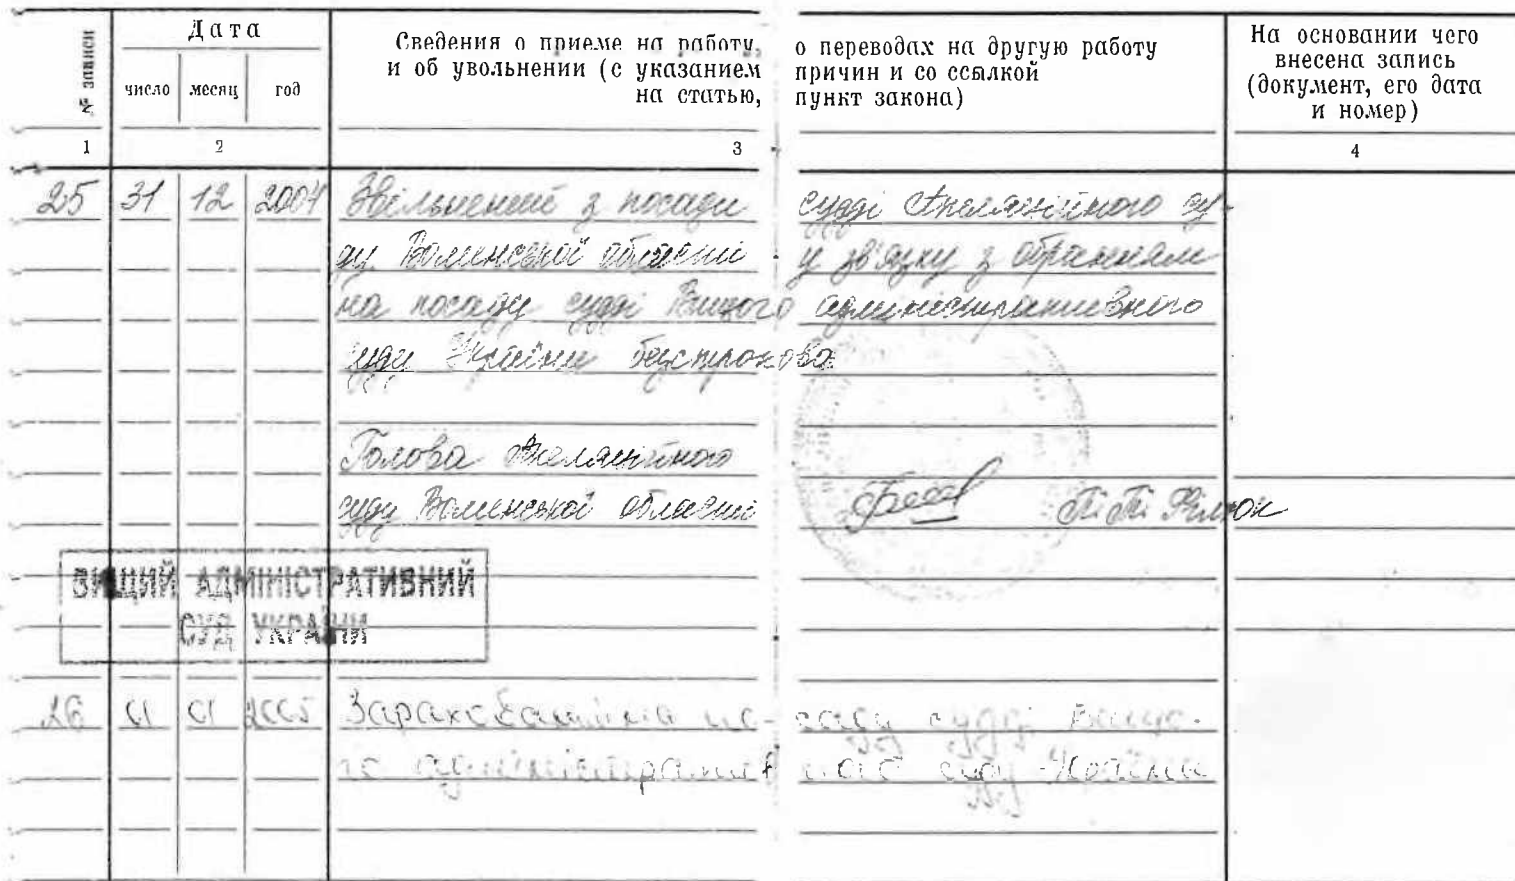 № записи
Дата
Сведения о приеме на работу, о переводах на другую работу
и об увольнении (с указанием причин и со ссылкой
на статью, пункт закона)
На основании чего
внесена запись
(документ, его дата
и номер)
число месяц год
1 2 3 4
25 31 12 2004 Звільнений з посади судді Апеляційного су-
ду Волинської області у зв'язку з обранням
на посаду судді Вищого адміністративного
суду України безстроково.
Голова Апеляційного
суду Волинської області
ВИЩИЙ АДМІНІСТРАТИВНИЙ
СУД УКРАЇНИ
26 01 01 2005 Зарахований на по- саду судді Вищо-
го адміністративного суду України